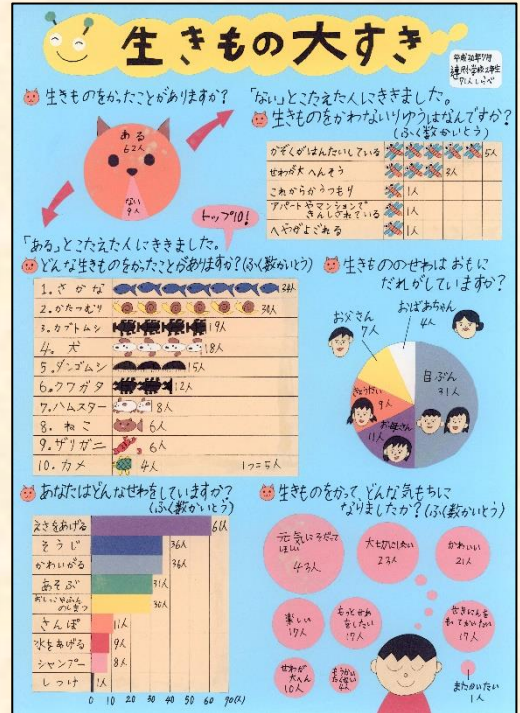 生きもの大すき
平成20年7月
小学校2年生
71人しらべ
生きものをかったことがありますか?
ある
62人
ない
9人
「ない」とこたえた人にききました。
生きものをかわないりゆうはなんですか?
(ふく数かいとう)
かぞくがはんたいしている 5人
せわが大へんそう 3人
これからかうつもり 1人
アパートやマンションで
きんしされている 1人
へやがよごれる 1人
トップ10!
「ある」とこたえた人にききました。
どんな生きものをかったことがありますか?(ふく数かいとう)
1.さかな
2.かたつむり 30人
3.カブトムシ 19人
4.犬 18人
5.ダンゴムシ 15人
6.クワガタ 12人
7.ハムスター 8人
8.ねこ 6人
9.ザリガニ 6人
10.カメ 4人
1つ=5人
生きもののせわはおもに
だれがしていますか?
おばあちゃん
4人
お父さん
7人
自ぶん
31人
きょうだい
9人
お母さん
11人
あなたはどんなせわをしていますか?
(ふく数かいとう)
えさをあげる 61人
そうじ 36人
かわいがる 36人
あそぶ 31人
おしっこやふん
のしまつ 30人
さんぽ 11人
水をあげる 9人
シャンプー 8人
しつけ 1人
0 10 20 30 40 50 60 70(人)
生きものをかって、どんな気もちに
なりましたか?(ふく数かいとう)
元気にそだって
ほしい
43人
大切にしたい
23人
かわいい
21人
楽しい
17人
もっとせわ
をしたい
17人
せきにんを
もってかいたい
17人
せわが
大へん
10人
もうかい
たくない
4人
またかいたい
1人